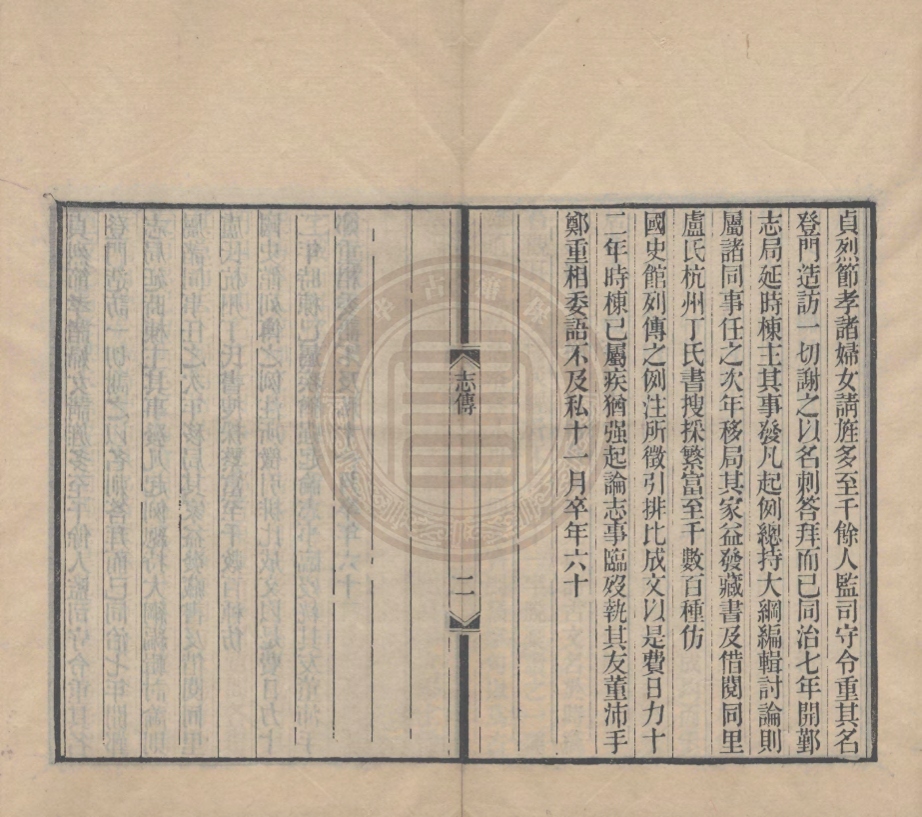 貞烈節孝諸婦女請旌多至千餘人監司守令重其名
登門造訪一切謝之以名刺答拜而已同治七年開鄞
志局延時棟主其事發凡起例總持大綱編輯討論則
屬諸同事任之次年移局其家益發藏書及借閱同里
盧氏杭州丁氏書搜採繁富至千數百種仿
國史館列傳之例注所徵引排比成文以是費日力十
二年時棟已屬疾猶强起論志事臨歿執其友董沛手
鄭重相委語不及私十一月卒年六十
志傳
二